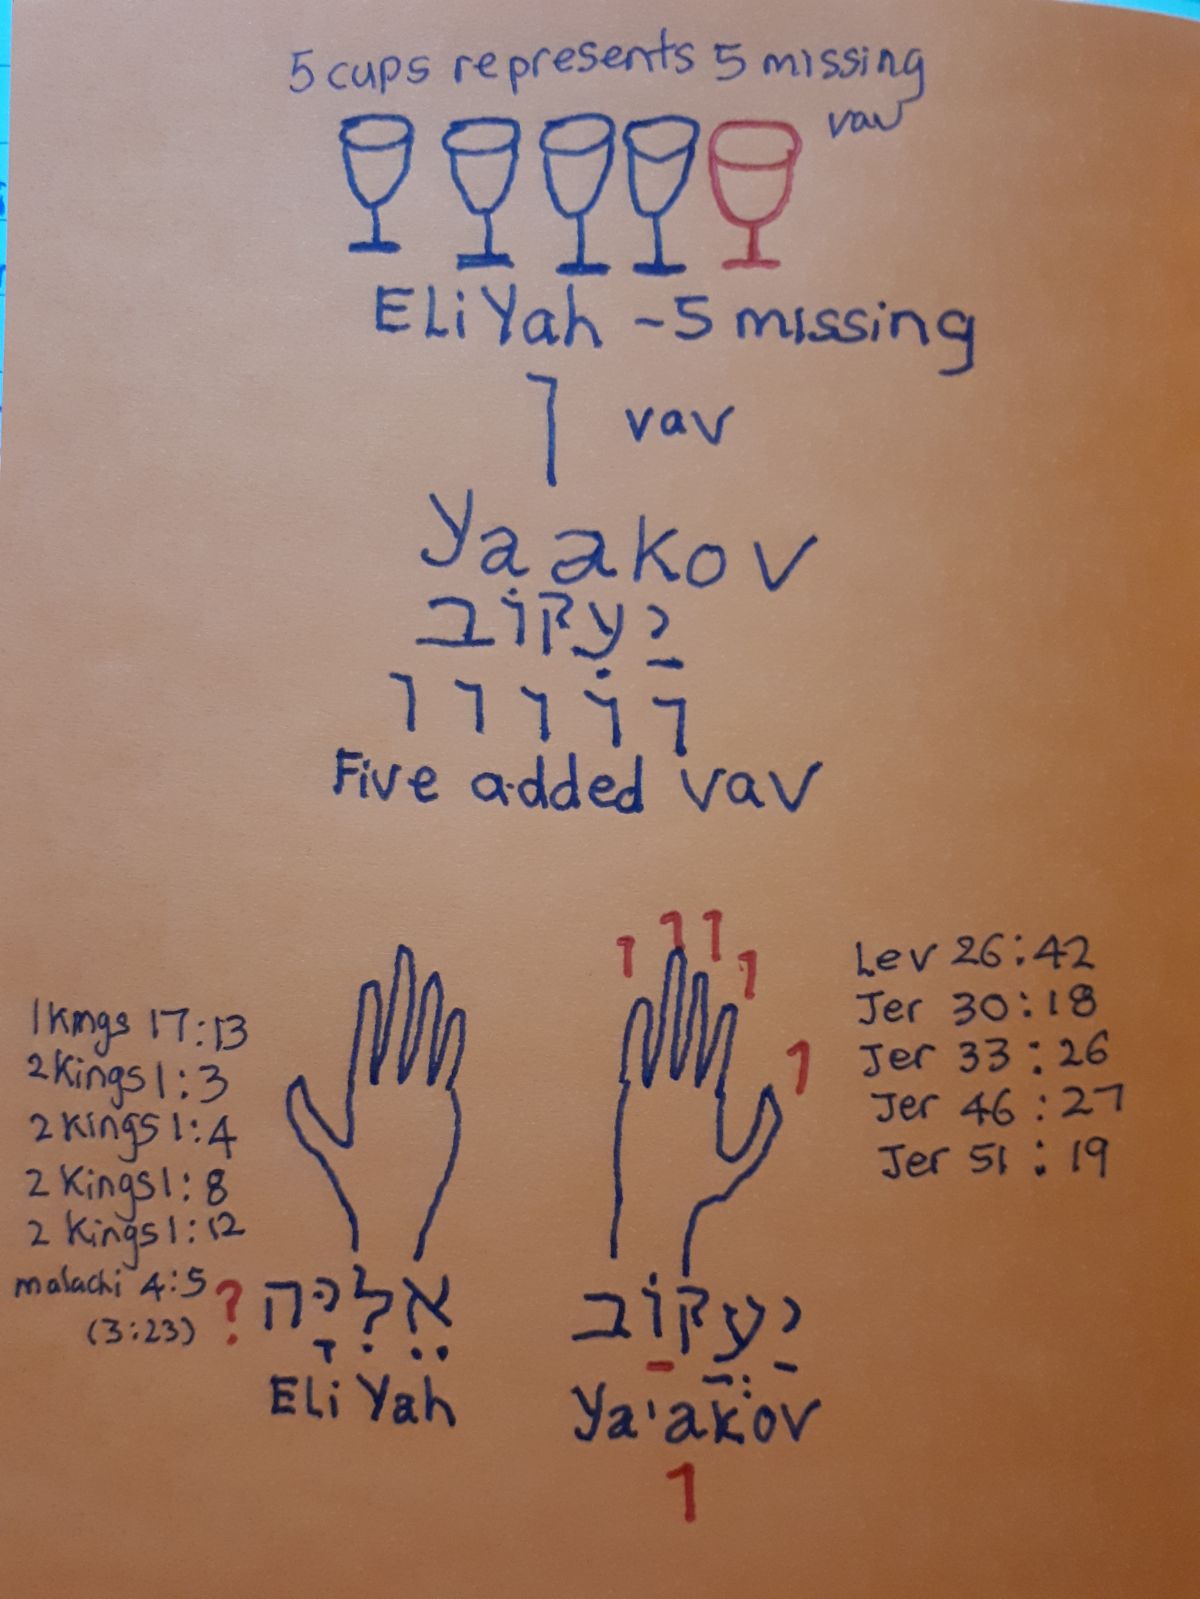 5 cups represents 5 missing
vav
ELiYah - 5 missing
ו vav
Yaakov
יַעְקוֹב
ו ו ו וֹ ו
Five added vav
1 Kings 17:13
2 Kings 1:3
2 Kings 1:4
2 Kings 1:8
2 Kings 1:12
malachi 4:5
(3:23) ?
אֵלִיָה
ELi Yah
ו ו ו ו
ו
יַעֲקוֹב
Ya'akov
ו
Lev 26:42
Jer 30:18
Jer 33:26
Jer 46:27
Jer 51:19